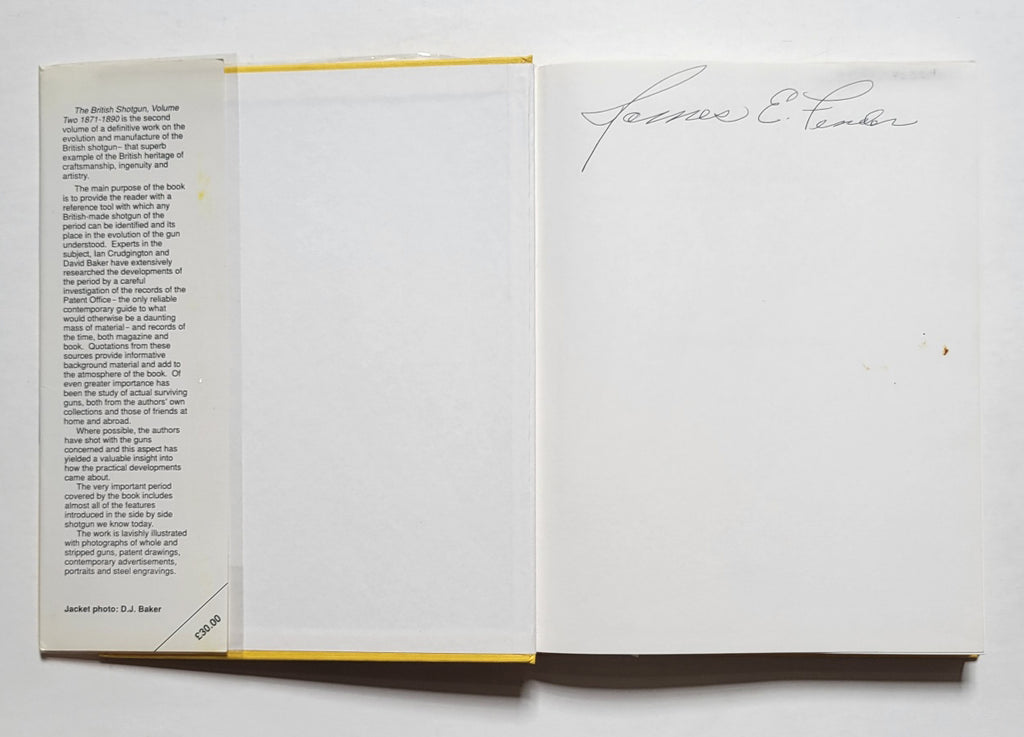 The British Shotgun, Volume
Two 1871-1890 is the second
volume of a definitive work on the
evolution and manufacture of the
British shotgun– that superb
example of the British heritage of
craftsmanship, ingenuity and
artistry.
The main purpose of the book
is to provide the reader with a
reference tool with which any
British-made shotgun of the
period can be identified and its
place in the evolution of the gun
understood. Experts in the
subject, Ian Crudgington and
David Baker have extensively
researched the developments of
the period by a careful
investigation of the records of the
Patent Office – the only reliable
contemporary guide to what
would otherwise be a daunting
mass of material – and records of
the time, both magazine and
book. Quotations from these
sources provide informative
background material and add to
the atmosphere of the book. Of
even greater importance has
been the study of actual surviving
guns, both from the authors' own
collections and those of friends at
home and abroad.
Where possible, the authors
have shot with the guns
concerned and this aspect has
yielded a valuable insight into
how the practical developments
came about.
The very important period
covered by the book includes
almost all of the features
introduced in the side by side
shotgun we know today.
The work is lavishly illustrated
with photographs of whole and
stripped guns, patent drawings,
contemporary advertisements,
portraits and steel engravings.
Jacket photo: D.J. Baker
£30.00
James E. Fender